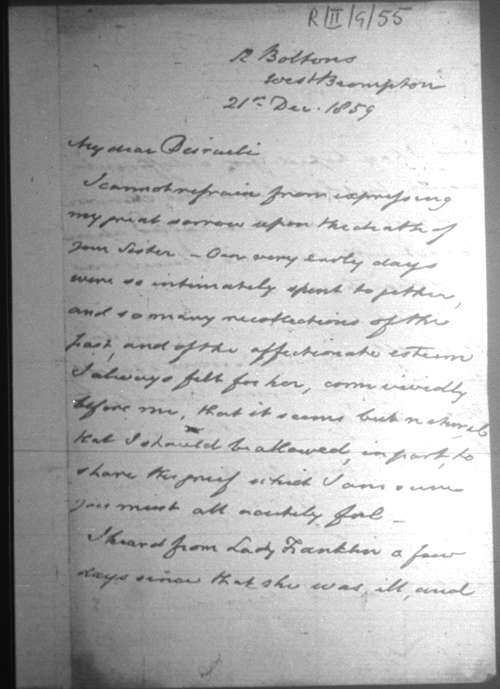 R/II/G/55
Boltons
West Brompton
21st Dec. 1859
My dear Disraeli
I cannot refrain from expressing
my great sorrow upon the death of
your Sister - Our very early days
were so intimately spent together,
and so many recollections of the
past, and of the affectionate esteem
I always felt for her, come vividly
before me, that it seems but natural
that I should be allowed, in part, to
share the grief which I am sure
you must all acutely feel -
I heard from Lady Franklin a few
days since that she was ill, and